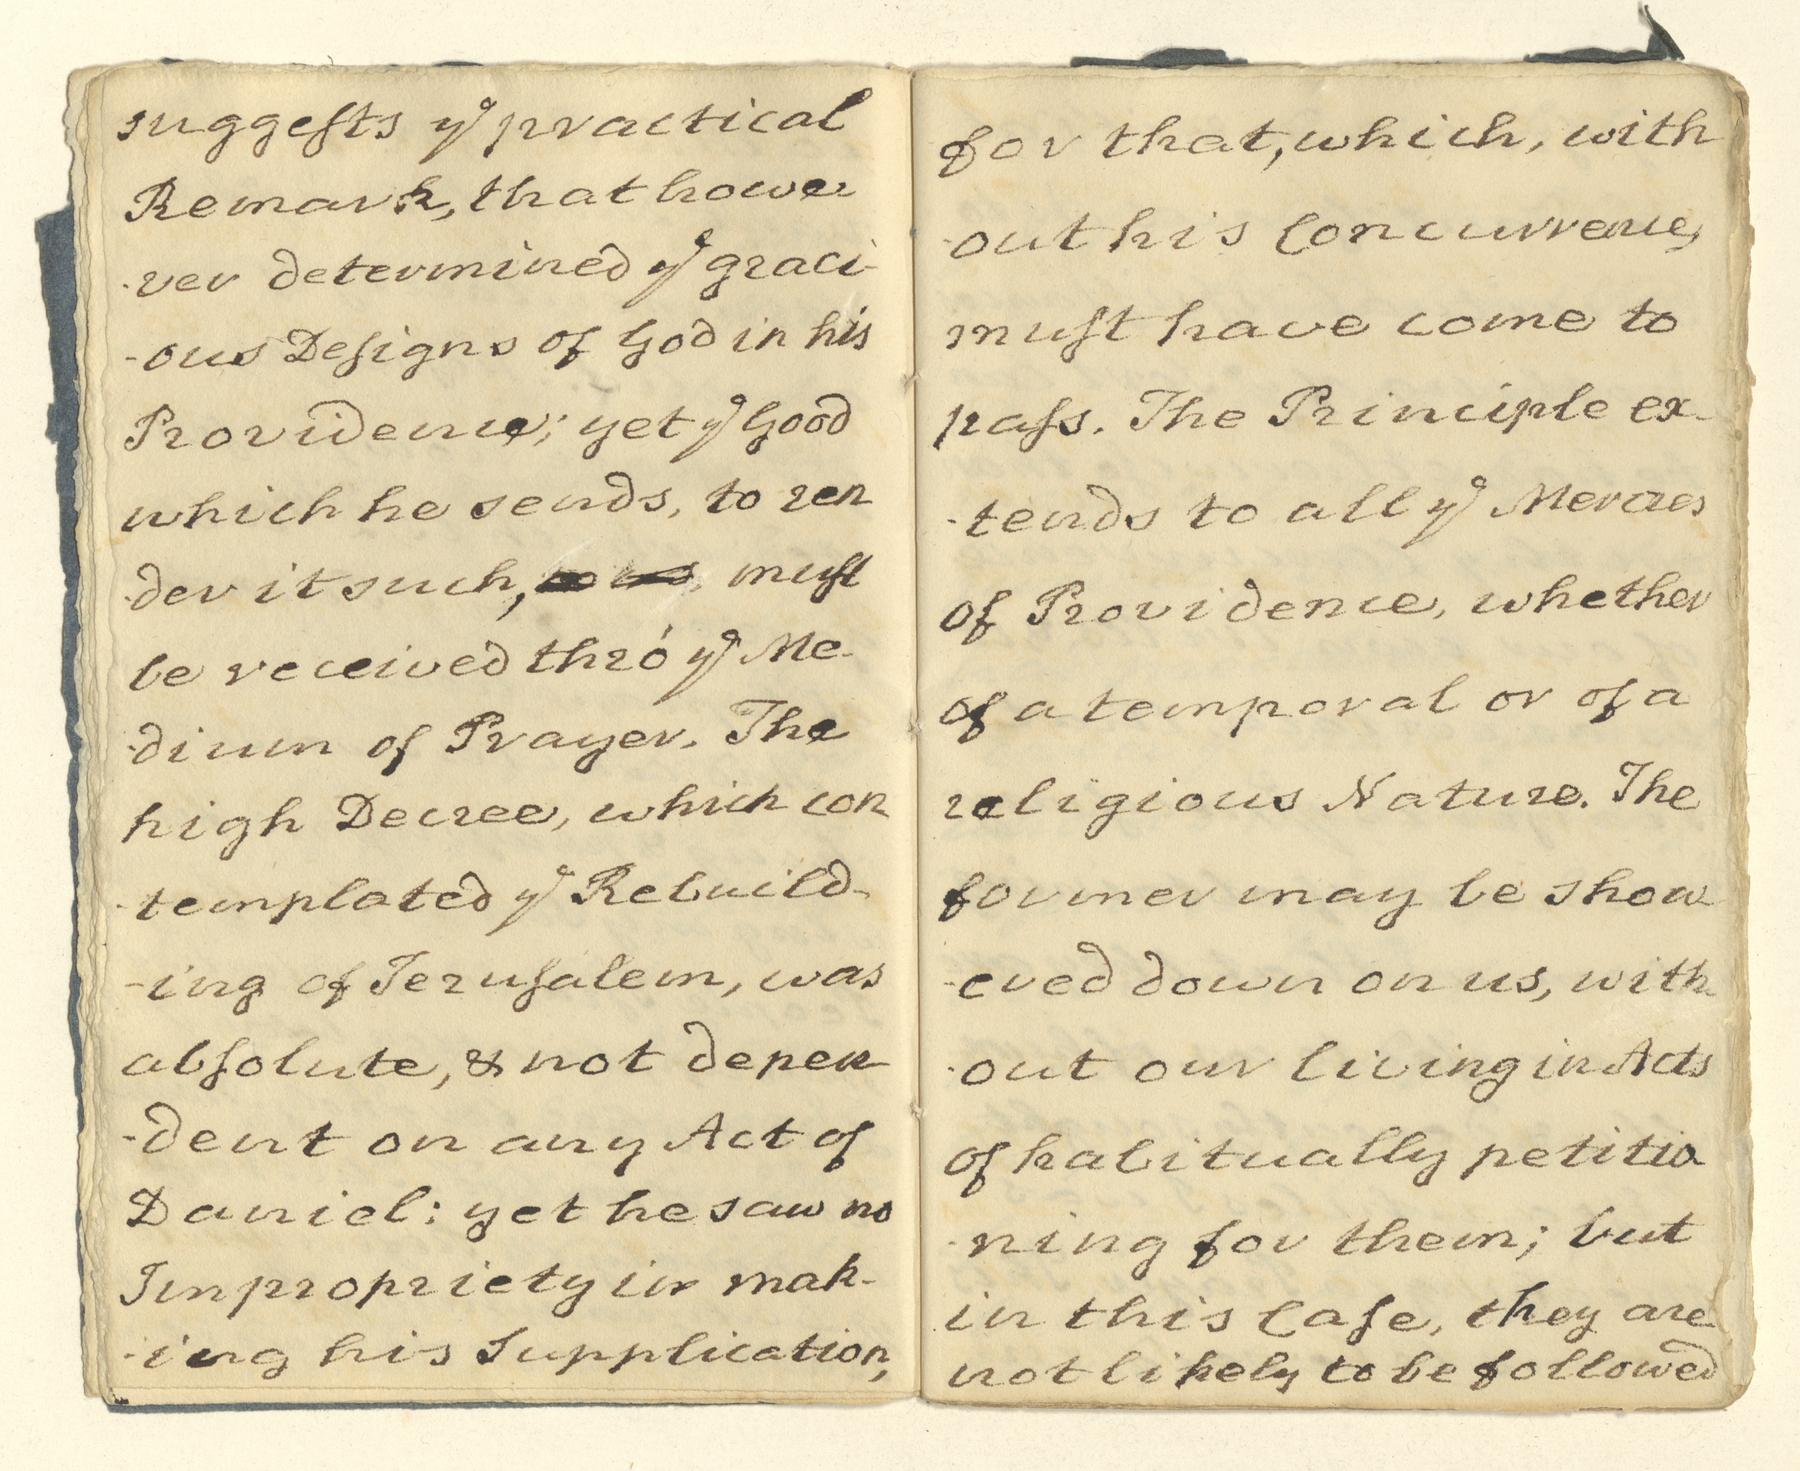 suggeſts yᵉ practical
Remark, that howe
-ver determined yᵉ graci-
-ous Deſigns of God in his
Providence; yet yᵉ Good
which he sends, to ren
-der it such, must
be received thró yᵉ Me-
-dium of Prayer. The
high Decree, which con
-templated yᵉ Rebuild-
-ing of Jeruſalem, was
abſolute, & not depen
-dent on any Act of
Daniel: yet he saw no
Impropriety in mak-
-ing his Supplication,
for that, which, with
-out his Concurrence,
muſt have come to
paſs. The Principle ex-
-tends to all yᵉ Mercies
of Providence, whether
of a temporal or of a
religious Nature. The
former may be show
-ered down on us, with-
-out our living in Acts
of habitually petitio
-ning for them; but
in this Caſe, they are
not likely to be followed